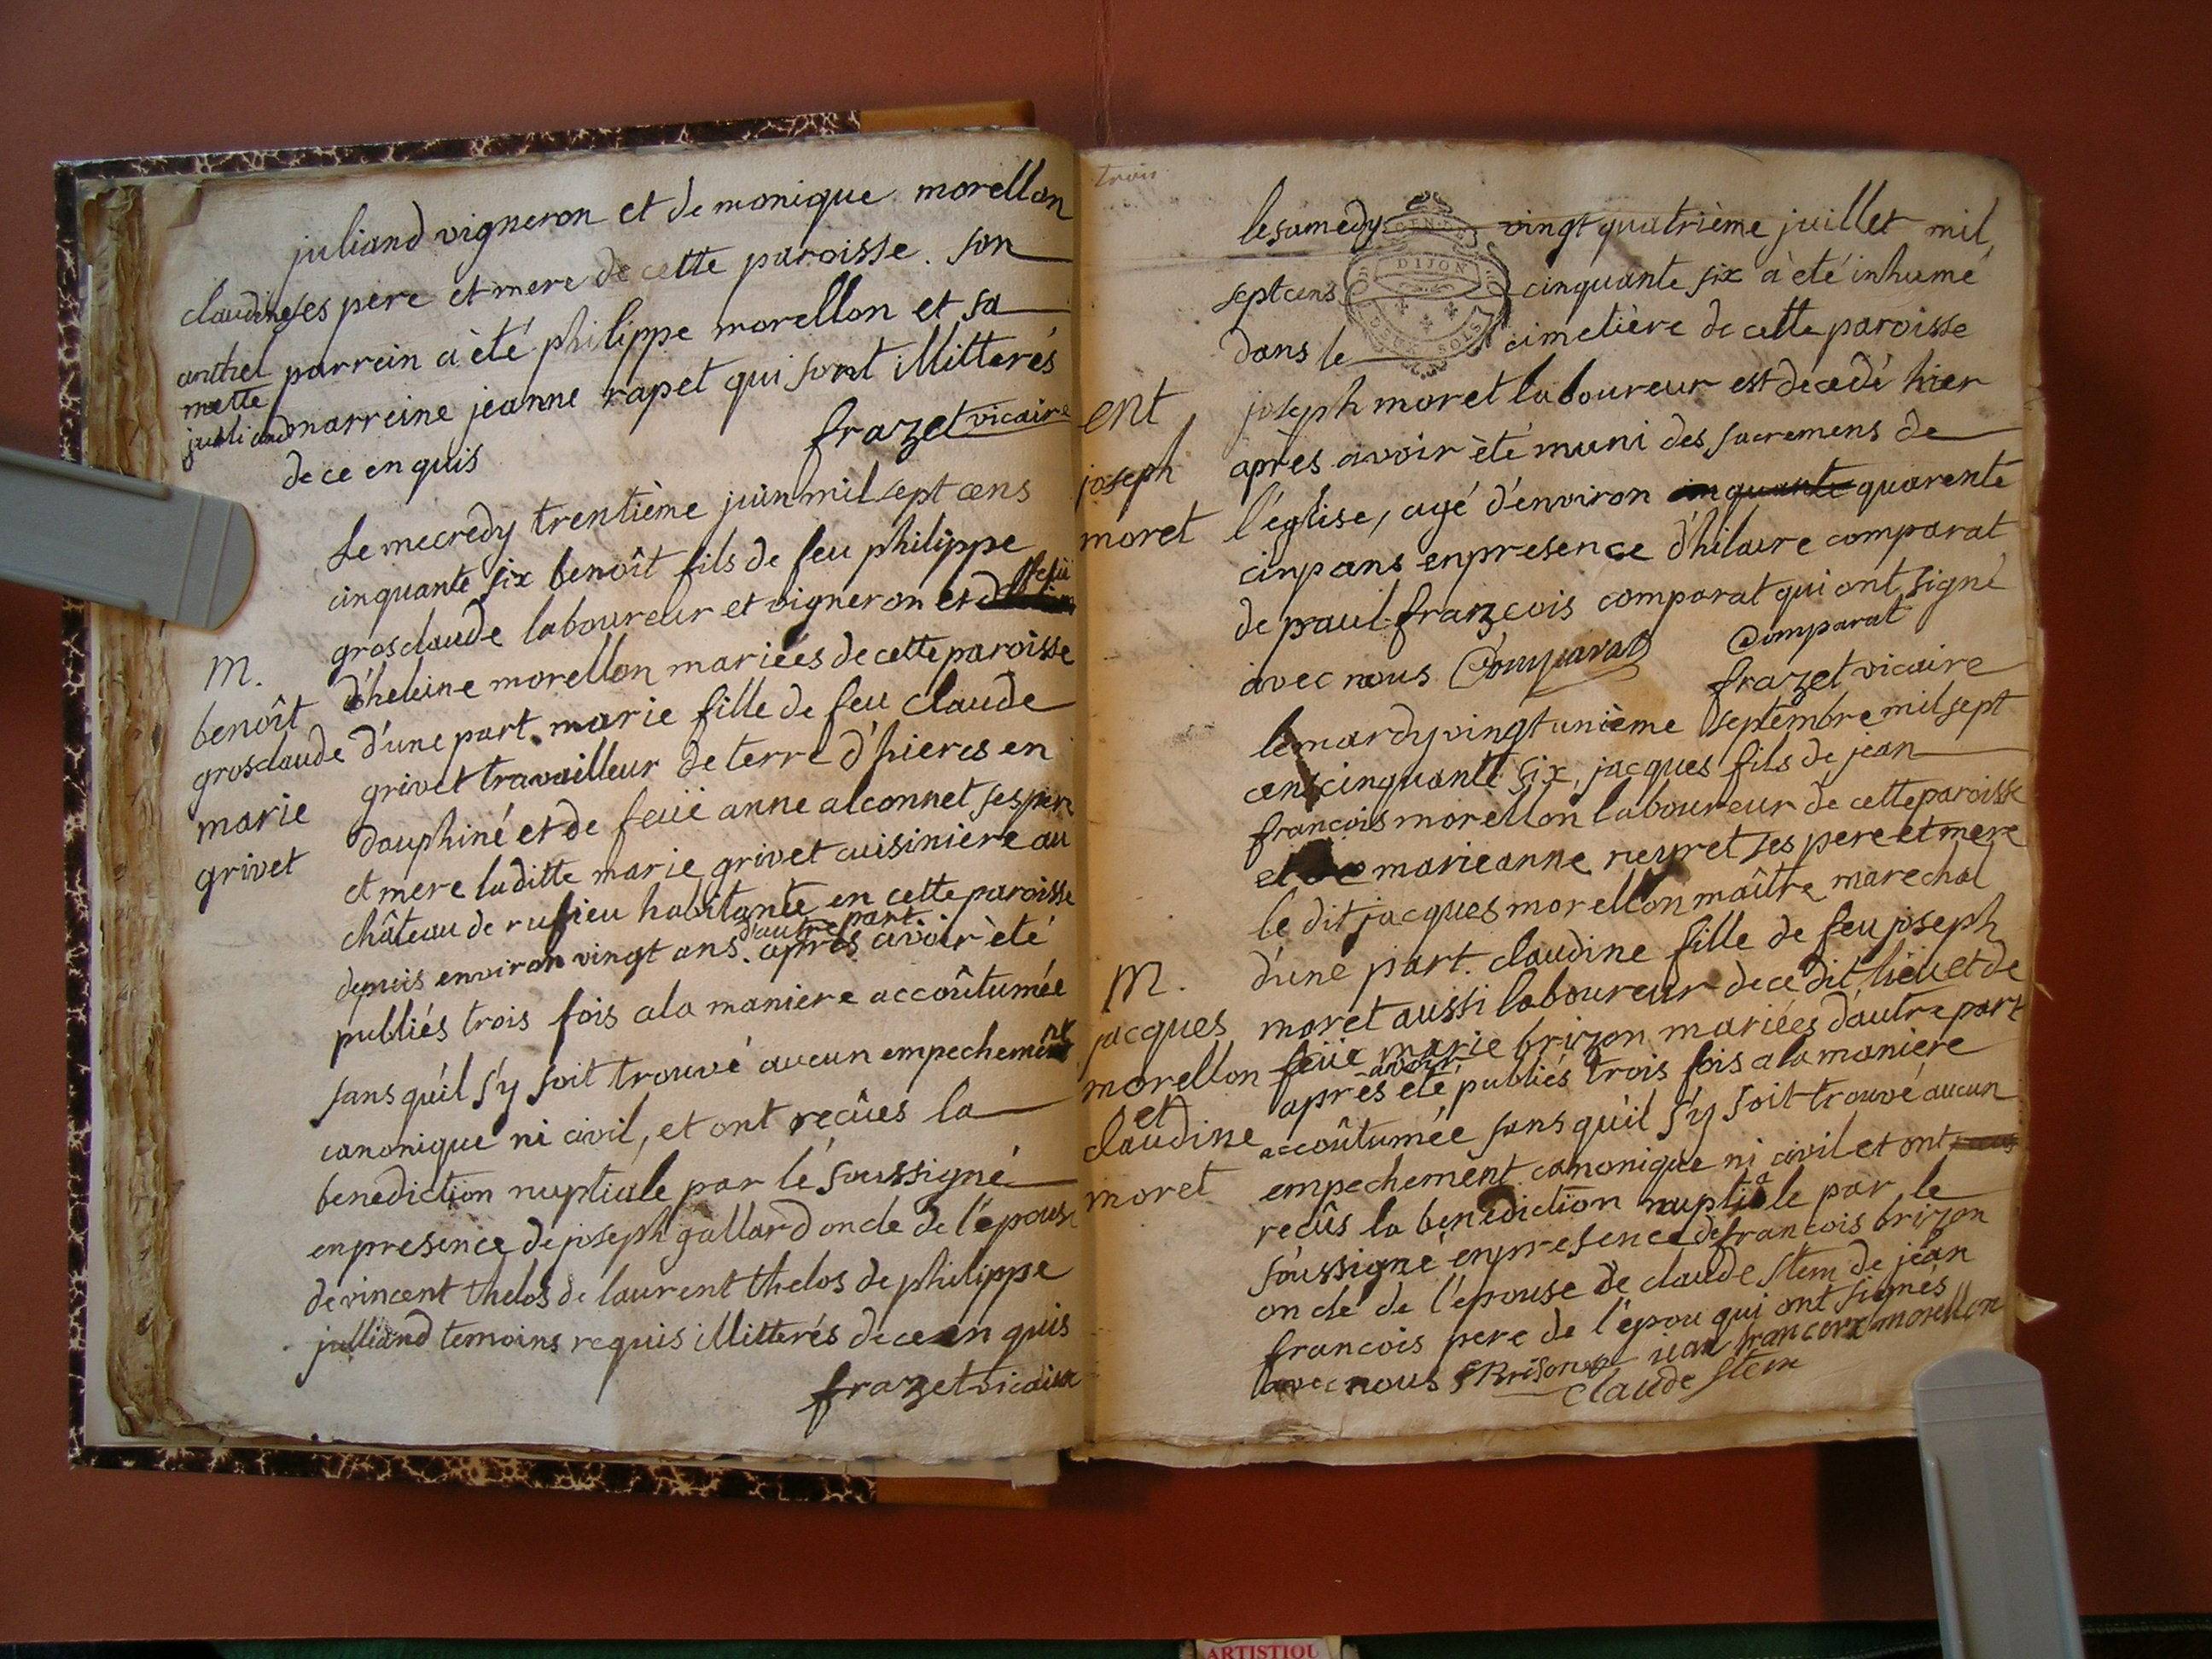 juliand vigneron et de monique morellon
claudine ses pere et mere de cette paroisse. son
parrein à èté philippe morellon et sa
mette
juliand marreine jeanne rapet qui sont illitterés
de ce enquis
frazet vicaire
Le mecredy trentième juin mil sept cens
cinquante six benoît fils de feu philippe
grosclaude laboureur et vigneron et de
feüe
d'heleine morellon mariées de cette paroisse
d'une part. marie fille de feu claude
grivet travailleur de terre d'hieres en
dauphiné et de feüe anne alconnet ses pere
et mere laditte marie grivet cuisiniere au
château de rufieu habitante en cette paroisse
d'autre part.
depuis environ vingt ans. après avoir èté
publiés trois fois ala maniere accoûtumée
sans qu'il s'y soit trouvé aucun empechement
canonique ni civil, et ont reçûes la
benediction nuptiale par le soussigné
enpresence de joseph gallard oncle de l'épouse
de vincent thelos de laurent thelos de philippe
julliand temoins requis illitterés de ce en quis
frazet vicaire
M.
benoît
grosclaude
marie
grivet
trois
le samedy vingt quatrième juillet mil
GEN. DE
DIJON
DEUX SOLS
sept cens cinquante six à èté inhumé
dans le cimetière de cette paroisse
joseph moret laboureur est décedé hier
après avoir èté muni des sacremens de
l'église, agé d'environ cinquante quarente
cinq ans enpresence d'hilaire comparat
de paul françois comparat qui ont signé
avec nous Comparat Comparat
frazet vicaire
ent
joseph
moret
le mardy vingt unième septembre mil sept
cens cinquante six, jacques fils de jean
francois morellon laboureur de cette paroisse
et de marieanne neyret ses pere et mere
le dit jacques morellon maître marechal
d'une part. claudine fille de feu joseph
moret aussi laboureur de ce dit lieu et de
feüe marie brizon mariées d'autre part
avoir
après eté publiés trois fois ala maniere
accoûtumée sans qu'il s'y soit trouvé aucun
empechement canonique ni civil et ont
reçûs la benediction nuptiale par le
soussigné enpresence de francois brizon
oncle de l'epouse de claude Stem de jean
francois pere de l'epou qui ont signés
avec nous f Brison jean francoix morellon
claude Stem
M.
jacques
morellon
et
claudine
moret